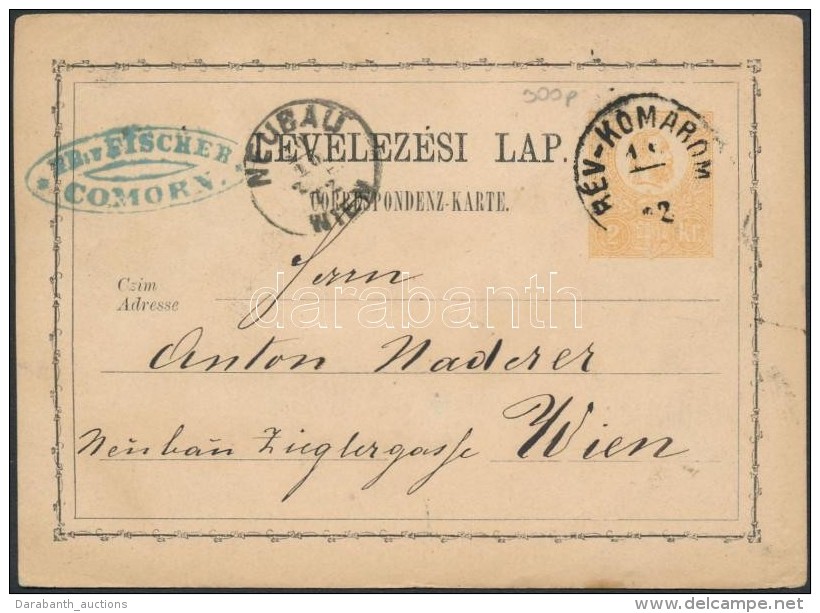 300p
FISCHER
COMORN.
NEUBAU
WIEN
RÉV-KOMÁROM
LEVELEZÉSI LAP.
CORRESPONDENZ-KARTE.
2 Kr
Czim
Adresse
Herrn
Anton Naderer
Neubau Zieglergasse Wien
darabanth
Darabanth_auctions
www.delcampe.net